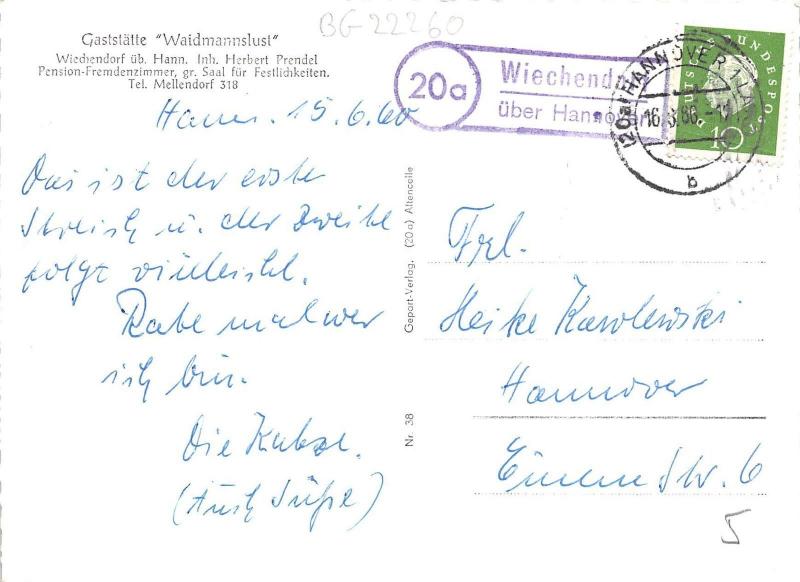 BG-22260
Gaststätte "Waidmannslust"
Wiechendorf üb. Hann. Inh. Herbert Prendel
Pension-Fremdenzimmer, gr. Saal für Festlichkeiten.
Tel. Mellendorf 318
20a
Wiechendo
über Hannover
(20a) HANNOVER 1
16.
b
DEUTSCHE BUNDESPOST
10
Hann. 15.6.60
Das ist der erste
Streich u. der zweite
folgt vielleicht.
Rate mal wer
ich bin.
Die Katze.
(Auch Süße)
Geport-Verlag, (20a) Altencelle
Nr. 38
Frl.
Heike Karolewski
Hannover
Str. 6
5